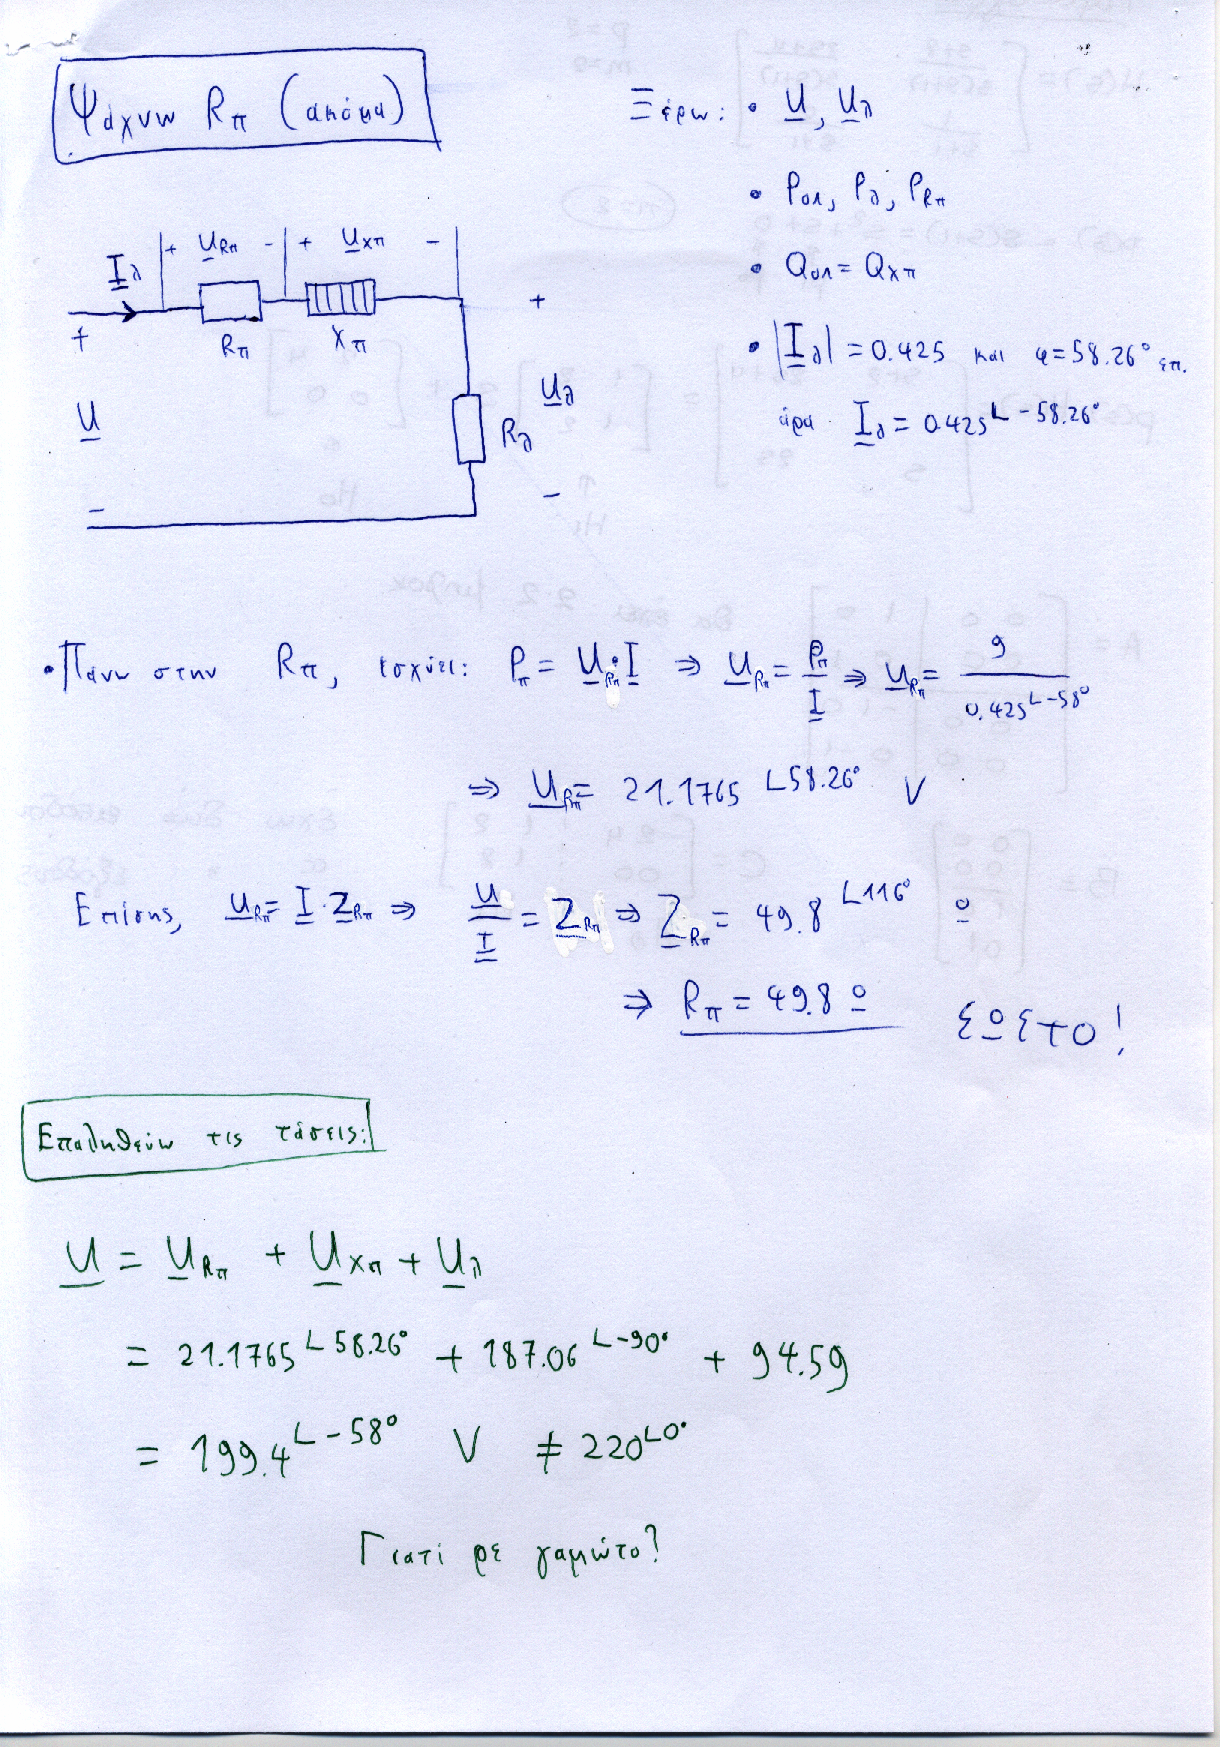 Ψάχνω Rπ (ακόμα)
Ξέρω: • U, Uλ
• Pολ, Pλ, PRπ
• Qολ = QXπ
• |Iλ| = 0.425 και φ = 58.26° επ.
άρα Iλ = 0.425∠-58.26°
+ URπ - + UXπ -
Iλ
Rπ Xπ
+ +
U Uλ
Rλ
- -
• Πάνω στην Rπ, ισχύει: Pπ = URπ·I ⇒ URπ = Pπ/I ⇒ URπ = 9/0.425∠-58°
⇒ URπ = 21.1765∠58.26° V
Επίσης, URπ = I·ZRπ ⇒ U/I = ZRπ ⇒ ZRπ = 49.8∠116° Ω
⇒ Rπ = 49.8 Ω
ΣΩΣΤΟ!
Επαληθεύω τις τάσεις:
U = URπ + UXπ + Uλ
= 21.1765∠58.26° + 187.06∠-90° + 94.59
= 199.4∠-58° V ≠ 220∠0°
Γιατί ρε γαμώτο?